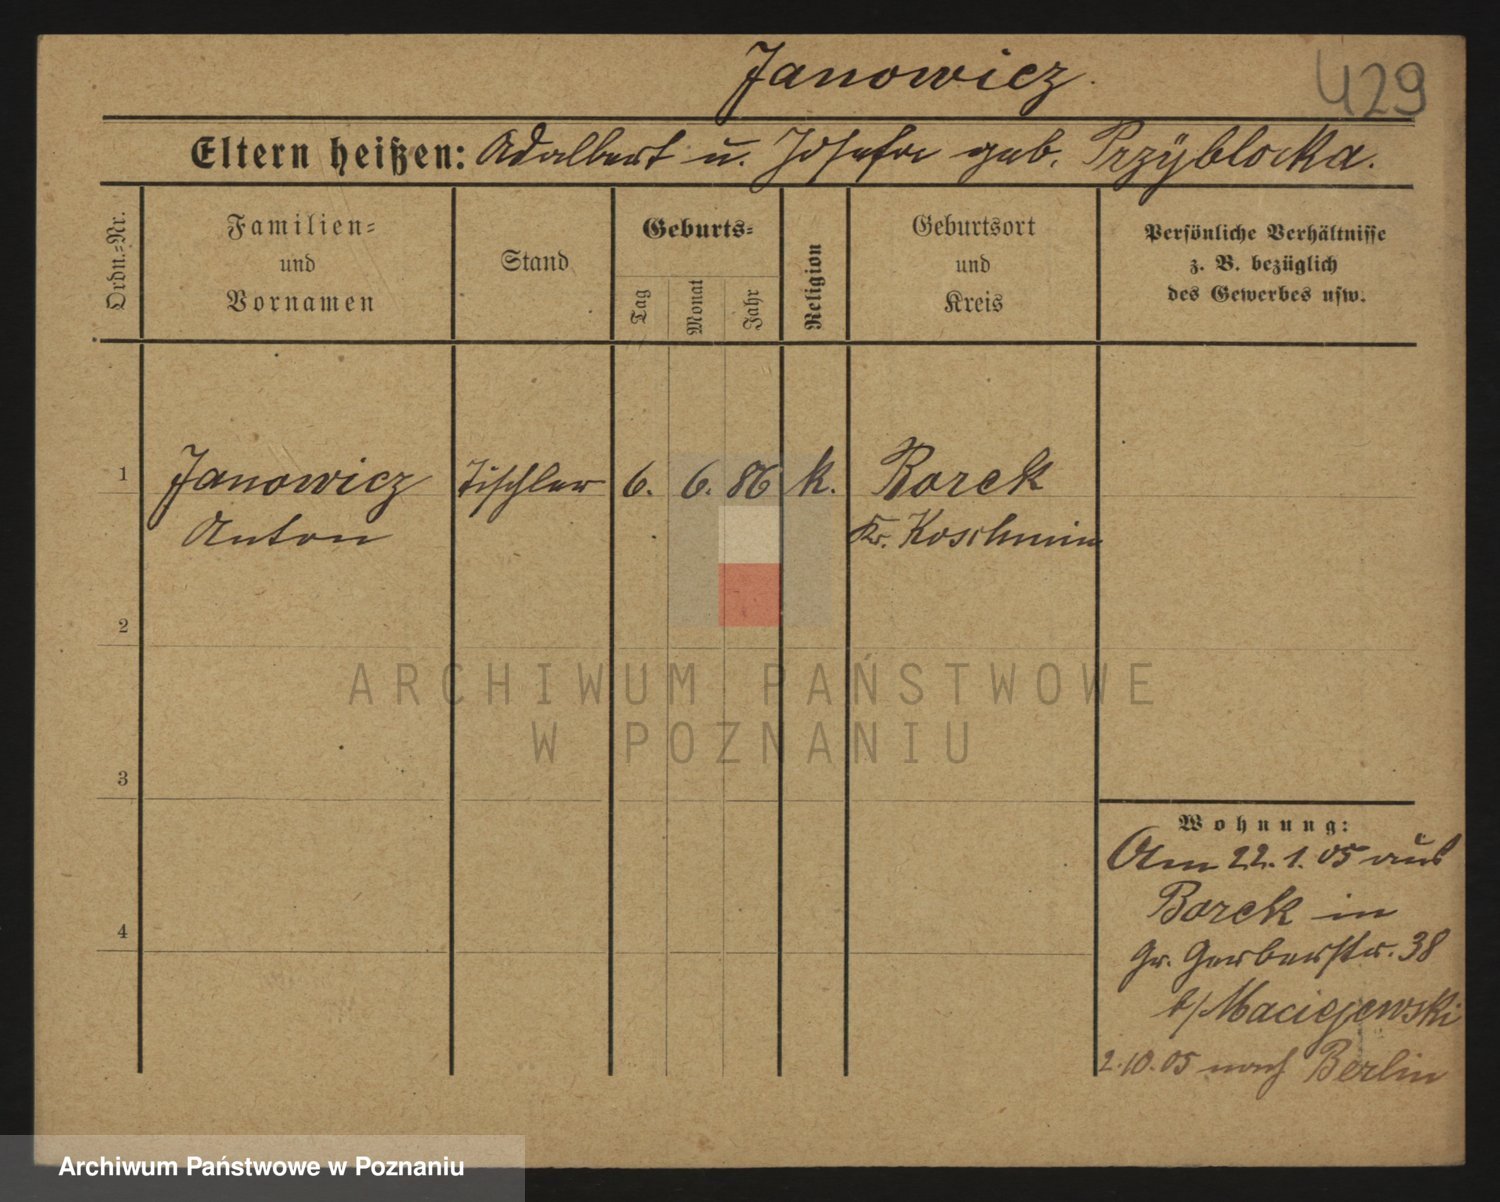 Janowicz
429
Eltern heißen: Adalbert u. Josefa geb. Przÿblocka.
Ordn.-Nr.
Familien-
und
Vornamen
Stand
Geburts-
Tag
Monat
Jahr
Religion
Geburtsort
und
Kreis
Persönliche Verhältnisse
z. B. bezüglich
des Gewerbes usw.
1 Janowicz Tischler 6. 6. 86 k. Borek
Anton Kr. Koschmin
2
ARCHIWUM PAŃSTWOWE
W POZNANIU
3
Wohnung:
Am 22.1.05 aus
Borek in
4
Gr. Gerberstr. 38
b/Maciejewski
2.10.05 nach Berlin
Archiwum Państwowe w Poznaniu